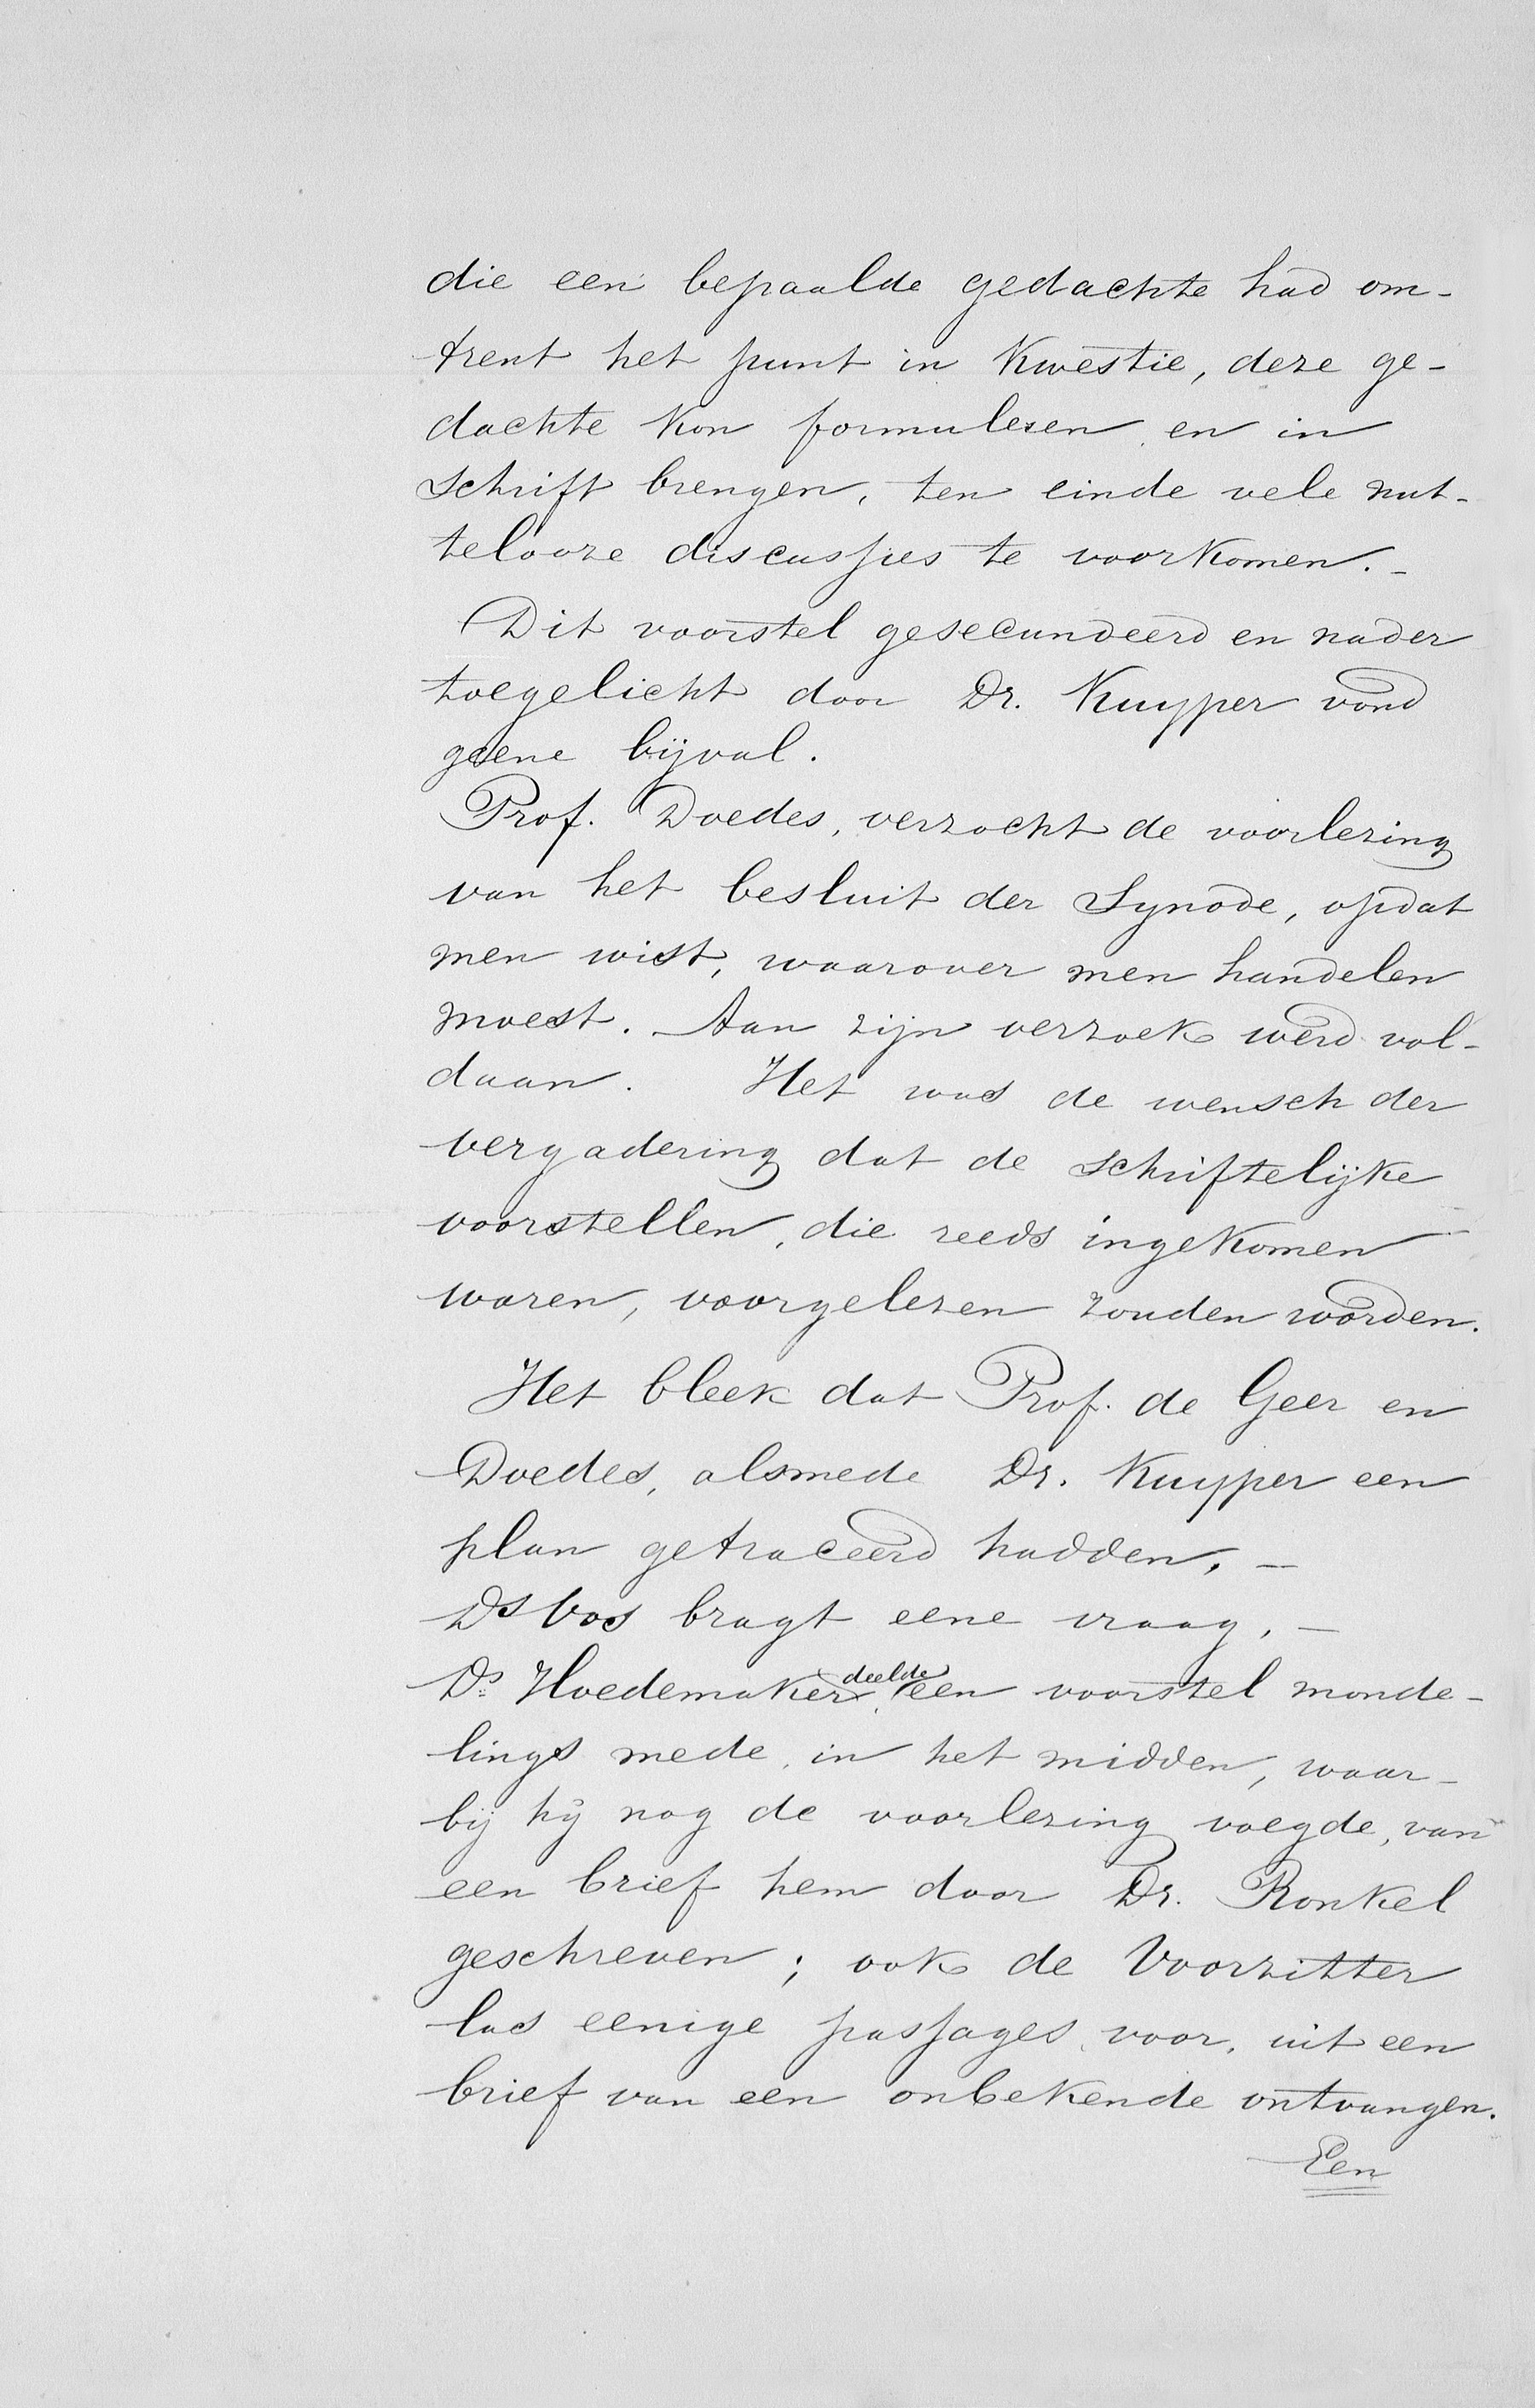 die een bepaalde gedachte had om-
trent het punt in Kwestie, deze ge-
dachte kon formuleren en in
schrift brengen, ten einde vele nut-
telooze discussies te voorkomen. -
Dit voorstel gesecundeerd en nader
toegelicht door Dr. Kuyper vond
geene bijval.
Prof. Doedes, verzocht de voorlezing
van het besluit der Synode, opdat
men wist, waarover men handelen
moest. Aan zijn verzoek werd vol-
daan. Het was de wensch der
vergadering dat de schriftelijke
voorstellen, die reeds ingekomen
waren, voorgelezen zouden worden.
Het bleek dat Prof. de Geer en
Doedes, alsmede Dr. Kuyper een
plan getraceerd hadden. -
Ds Vos bragt eene vraag. -
Ds. Hoedemaker deelde een voorstel monde-
lings mede, in het midden, waar-
bij hij nog de voorlezing voegde, van
een brief hem door Dr. Ronkel
geschreven; ook de Voorzitter
las eenige passages voor, uit een
brief van een onbekende ontvangen.
Een